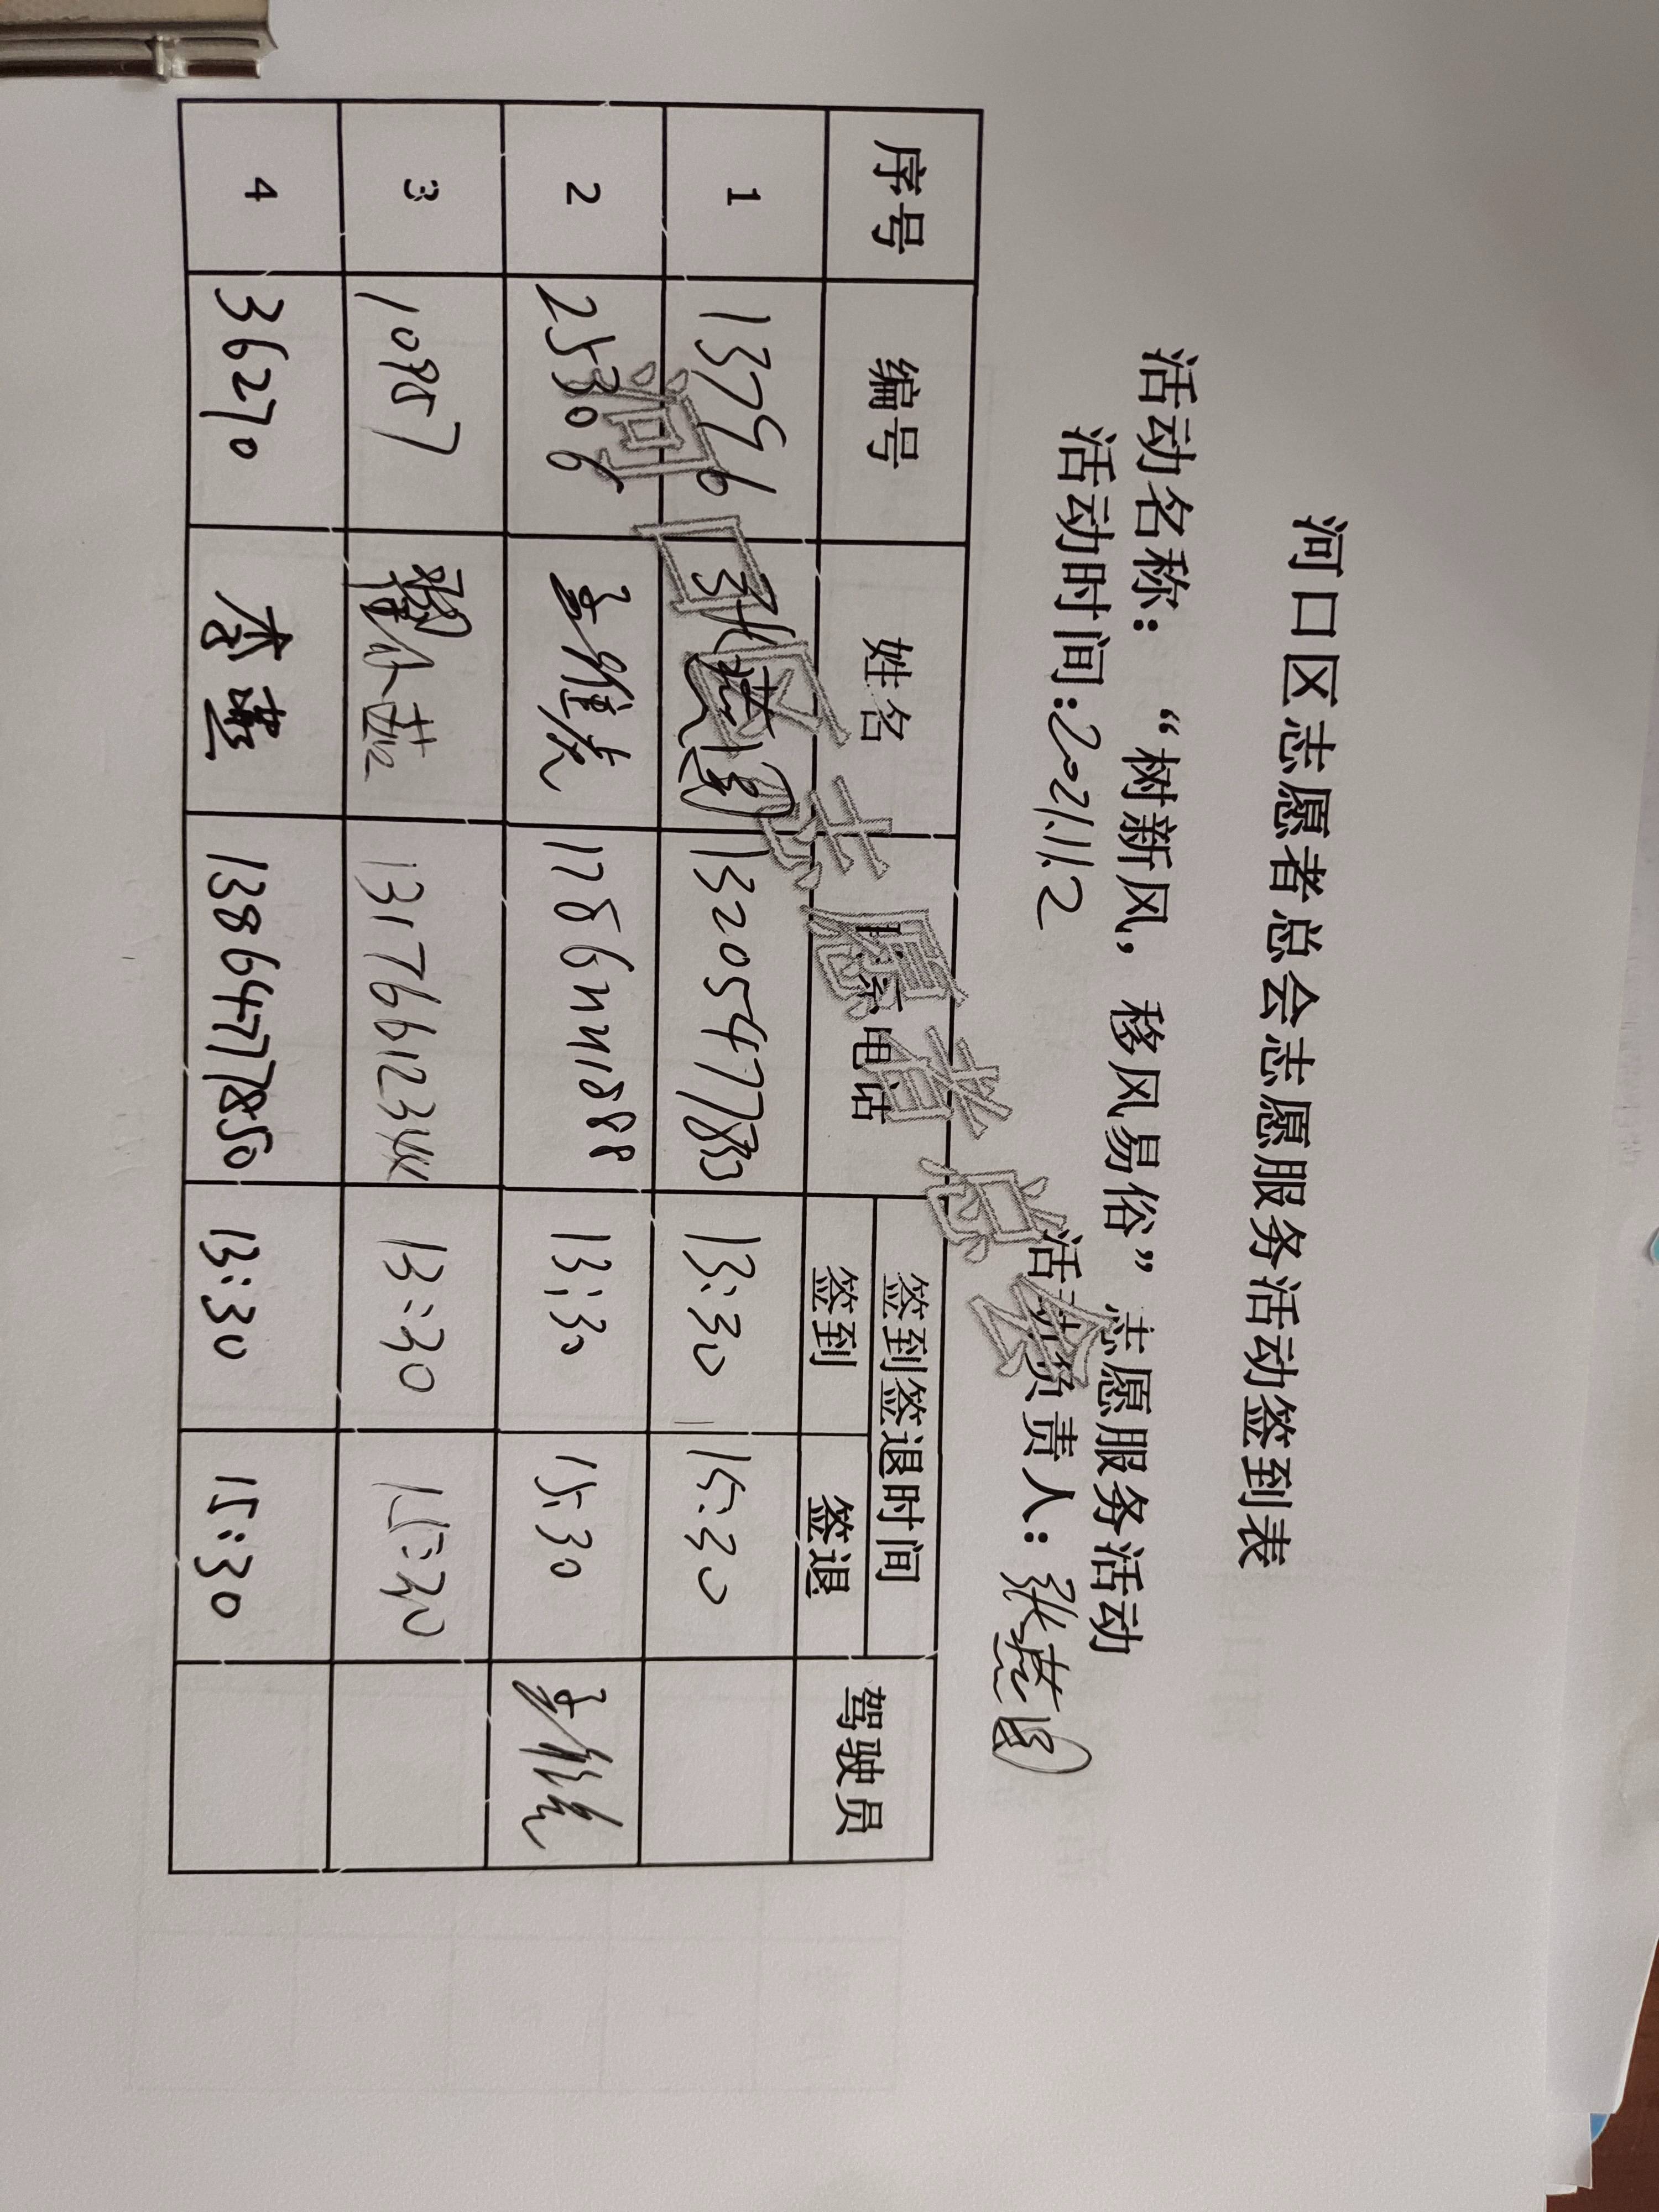 河口区志愿者总会志愿服务活动签到表
活动名称：“树新风，移风易俗”志愿服务活动
活动时间:2021.11.2 活动负责人：张燕园
序号 编号 姓名 联系电话 签到签退时间 驾驶员
签到 签退
1 13796 张燕园 13:30 15:30
2 25306 13:30 15:30
3 10957 13:30 15:30
4 36270 李燕 13864778550 13:30 15:30
河口区志愿者总会